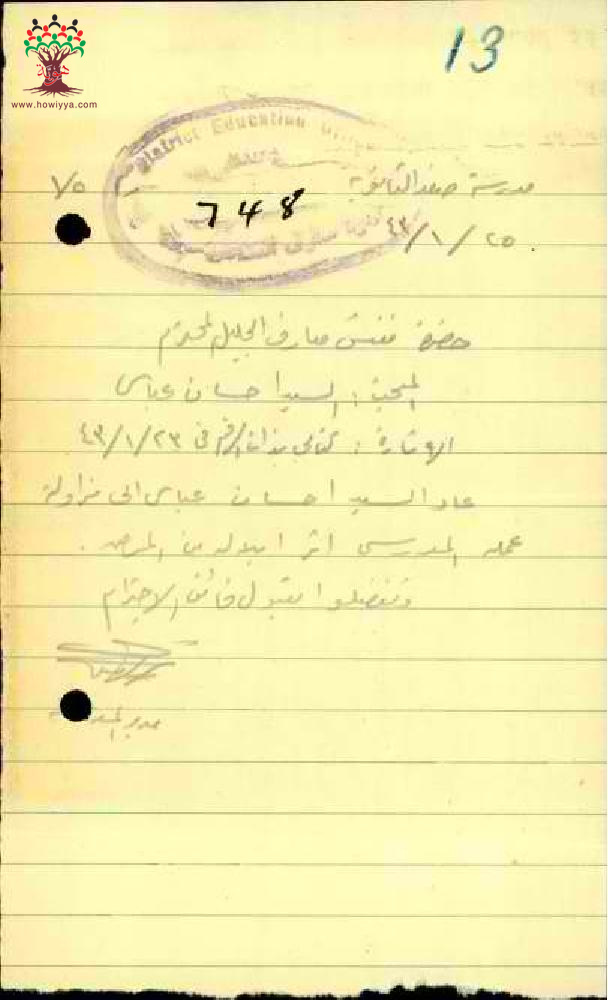 13
www.howiyya.com
District Education
748
مدرسة صفد الثانوية
٧٥
٤٣/١/٢٥
حضرة مفتش معارف الجليل المحترم
المبحث : السيد احسان عباس
الاشارة : كتابي بذات الرقم في ٤٣/١/٢٣
عاد السيد احسان عباس الى مزاولة
عمله المدرسي اثر ابلاله من المرض .
وتفضلوا بقبول فائق الاحترام
مدير المدرسة